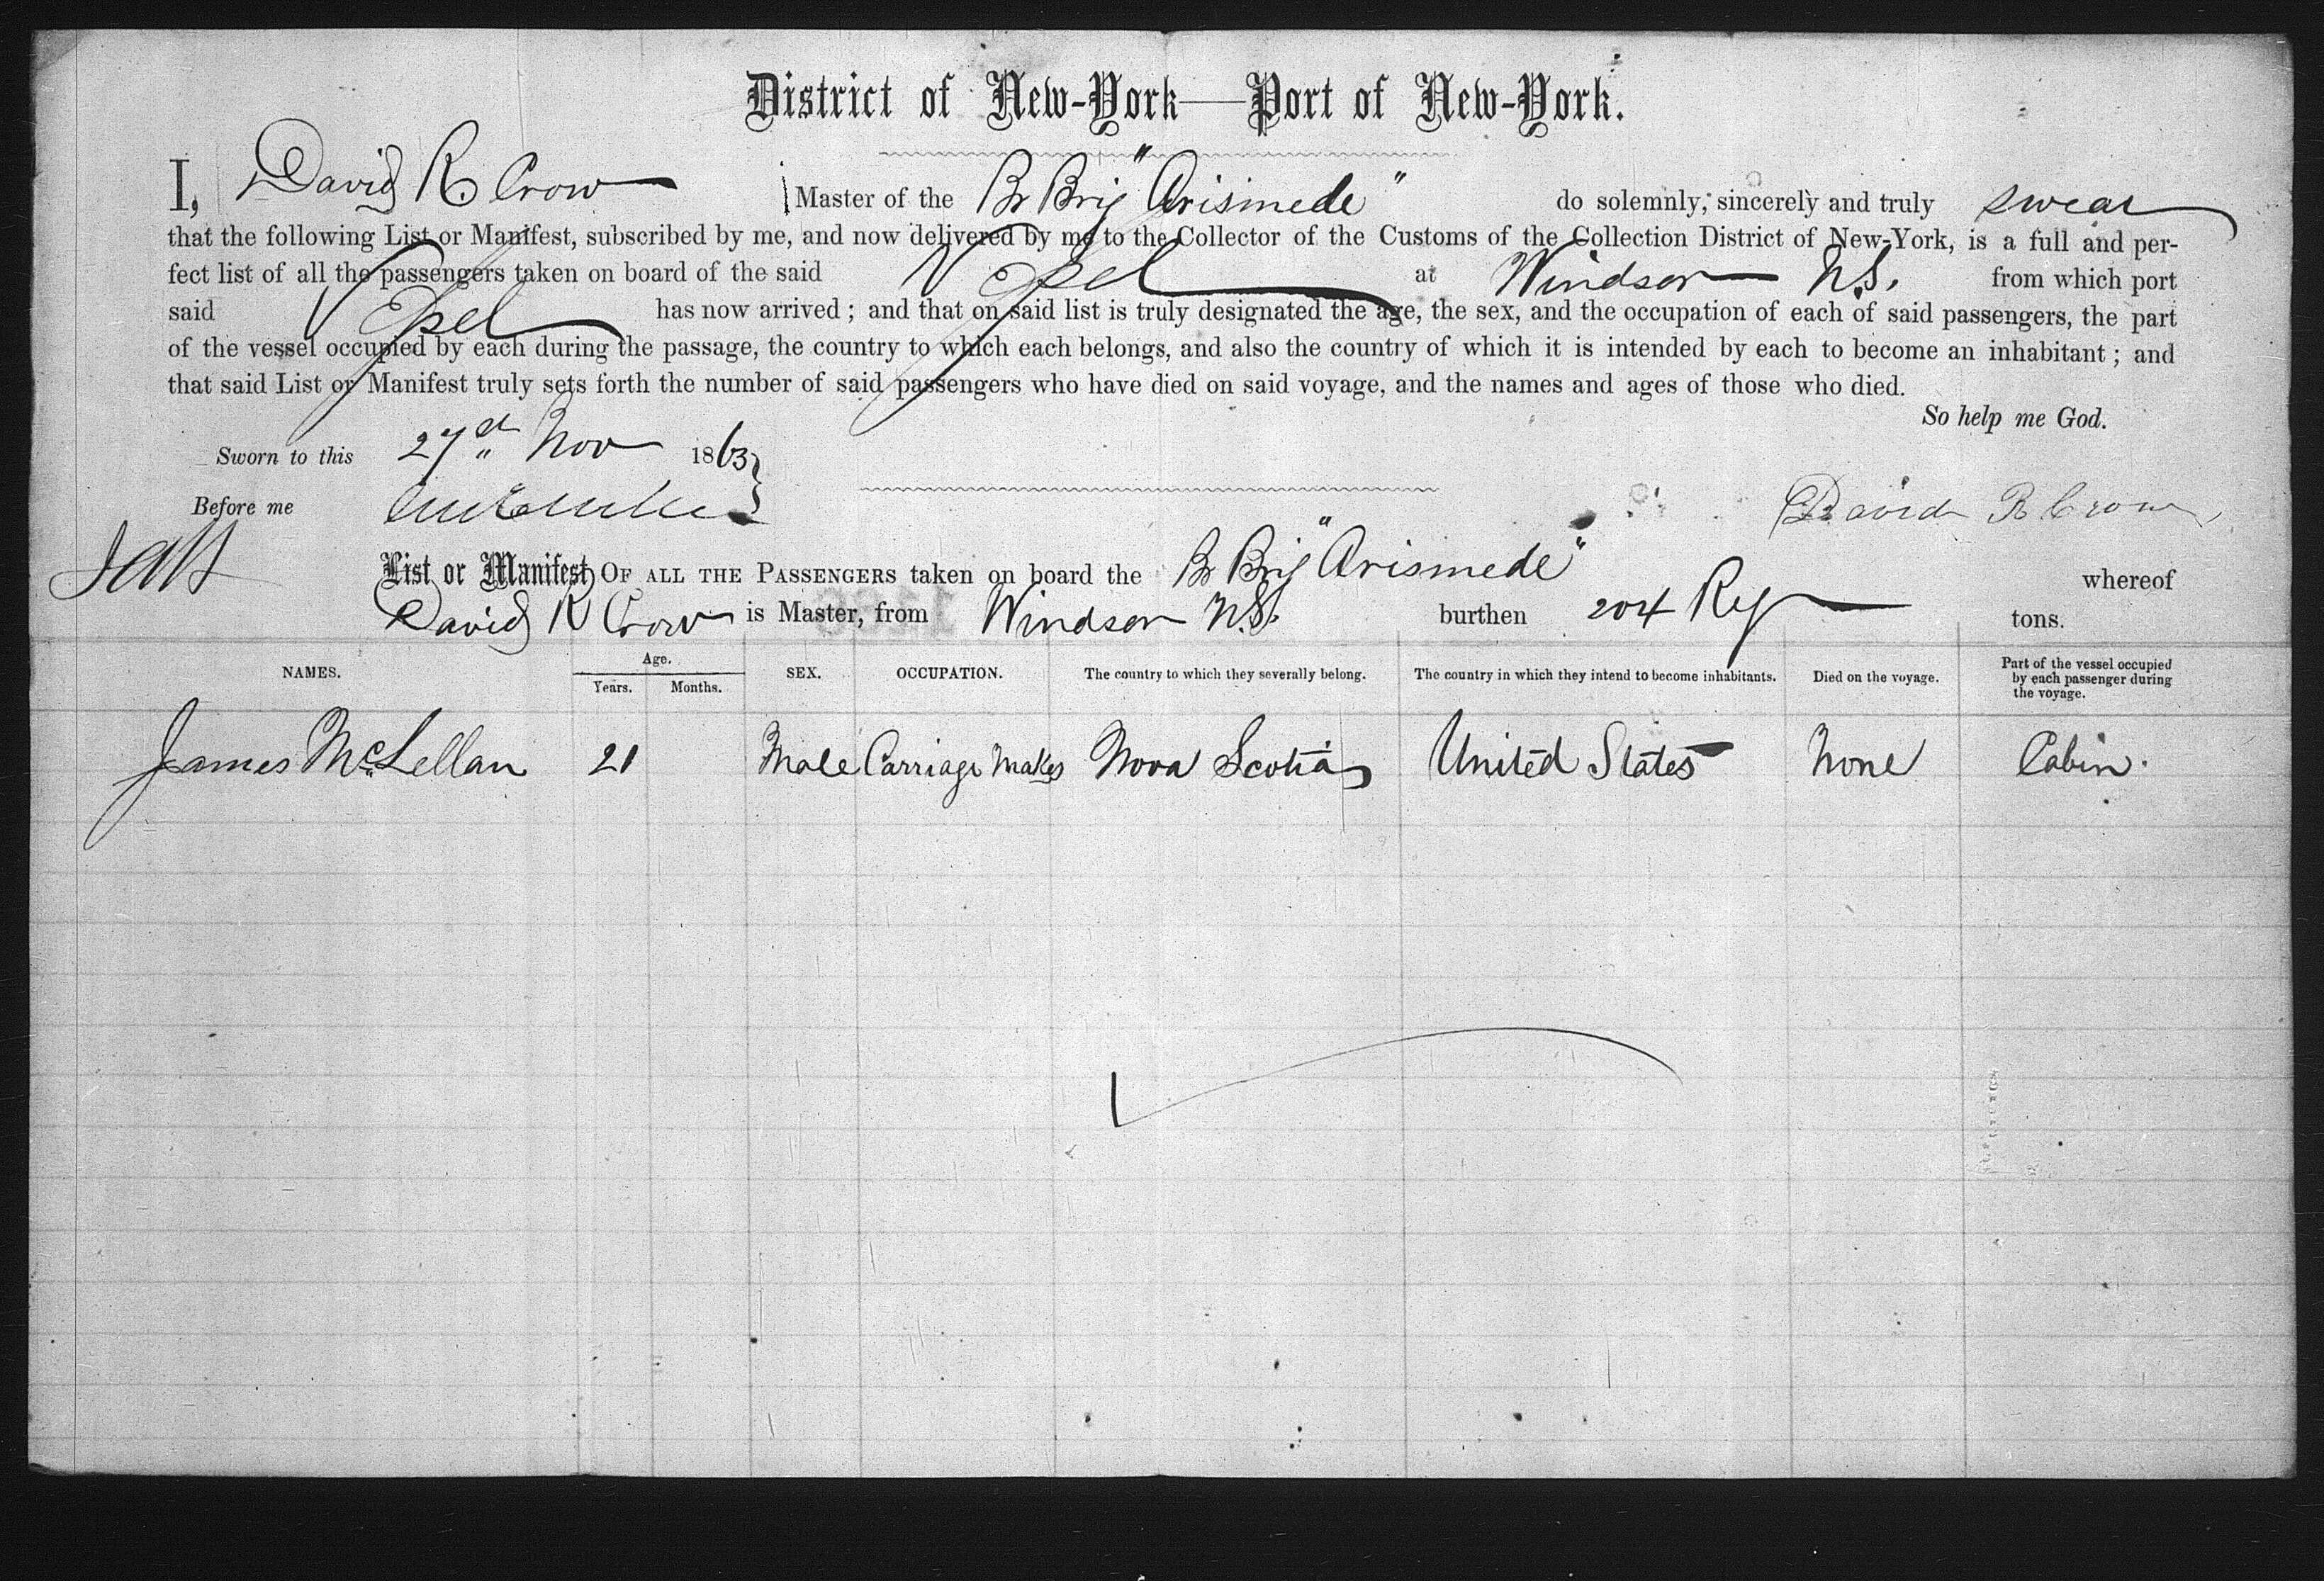 District of New-York—Port of New-York.
I, David R Crow Master of the Br Brig "Arismede" do solemnly, sincerely and truly swear
that the following List or Manifest, subscribed by me, and now delivered by me to the Collector of the Customs of the Collection District of New-York, is a full and per-
fect list of all the passengers taken on board of the said Vessel at Windsor N.S. from which port
said Vessel has now arrived ; and that on said list is truly designated the age, the sex, and the occupation of each of said passengers, the part
of the vessel occupied by each during the passage, the country to which each belongs, and also the country of which it is intended by each to become an inhabitant ; and
that said List or Manifest truly sets forth the number of said passengers who have died on said voyage, and the names and ages of those who died.
So help me God.
Sworn to this 27 Nov 1863
Before me
David R Crow
List or Manifest OF ALL THE PASSENGERS taken on board the Br Brig "Arismede" whereof
David R Crow is Master, from Windsor N.S. burthen 204 Reg tons.
NAMES. Age. Years. Months. SEX. OCCUPATION. The country to which they severally belong. The country in which they intend to become inhabitants. Died on the voyage. Part of the vessel occupied by each passenger during the voyage.
James McLellan 21 Male Carriage Maker Nova Scotia United States None Cabin.